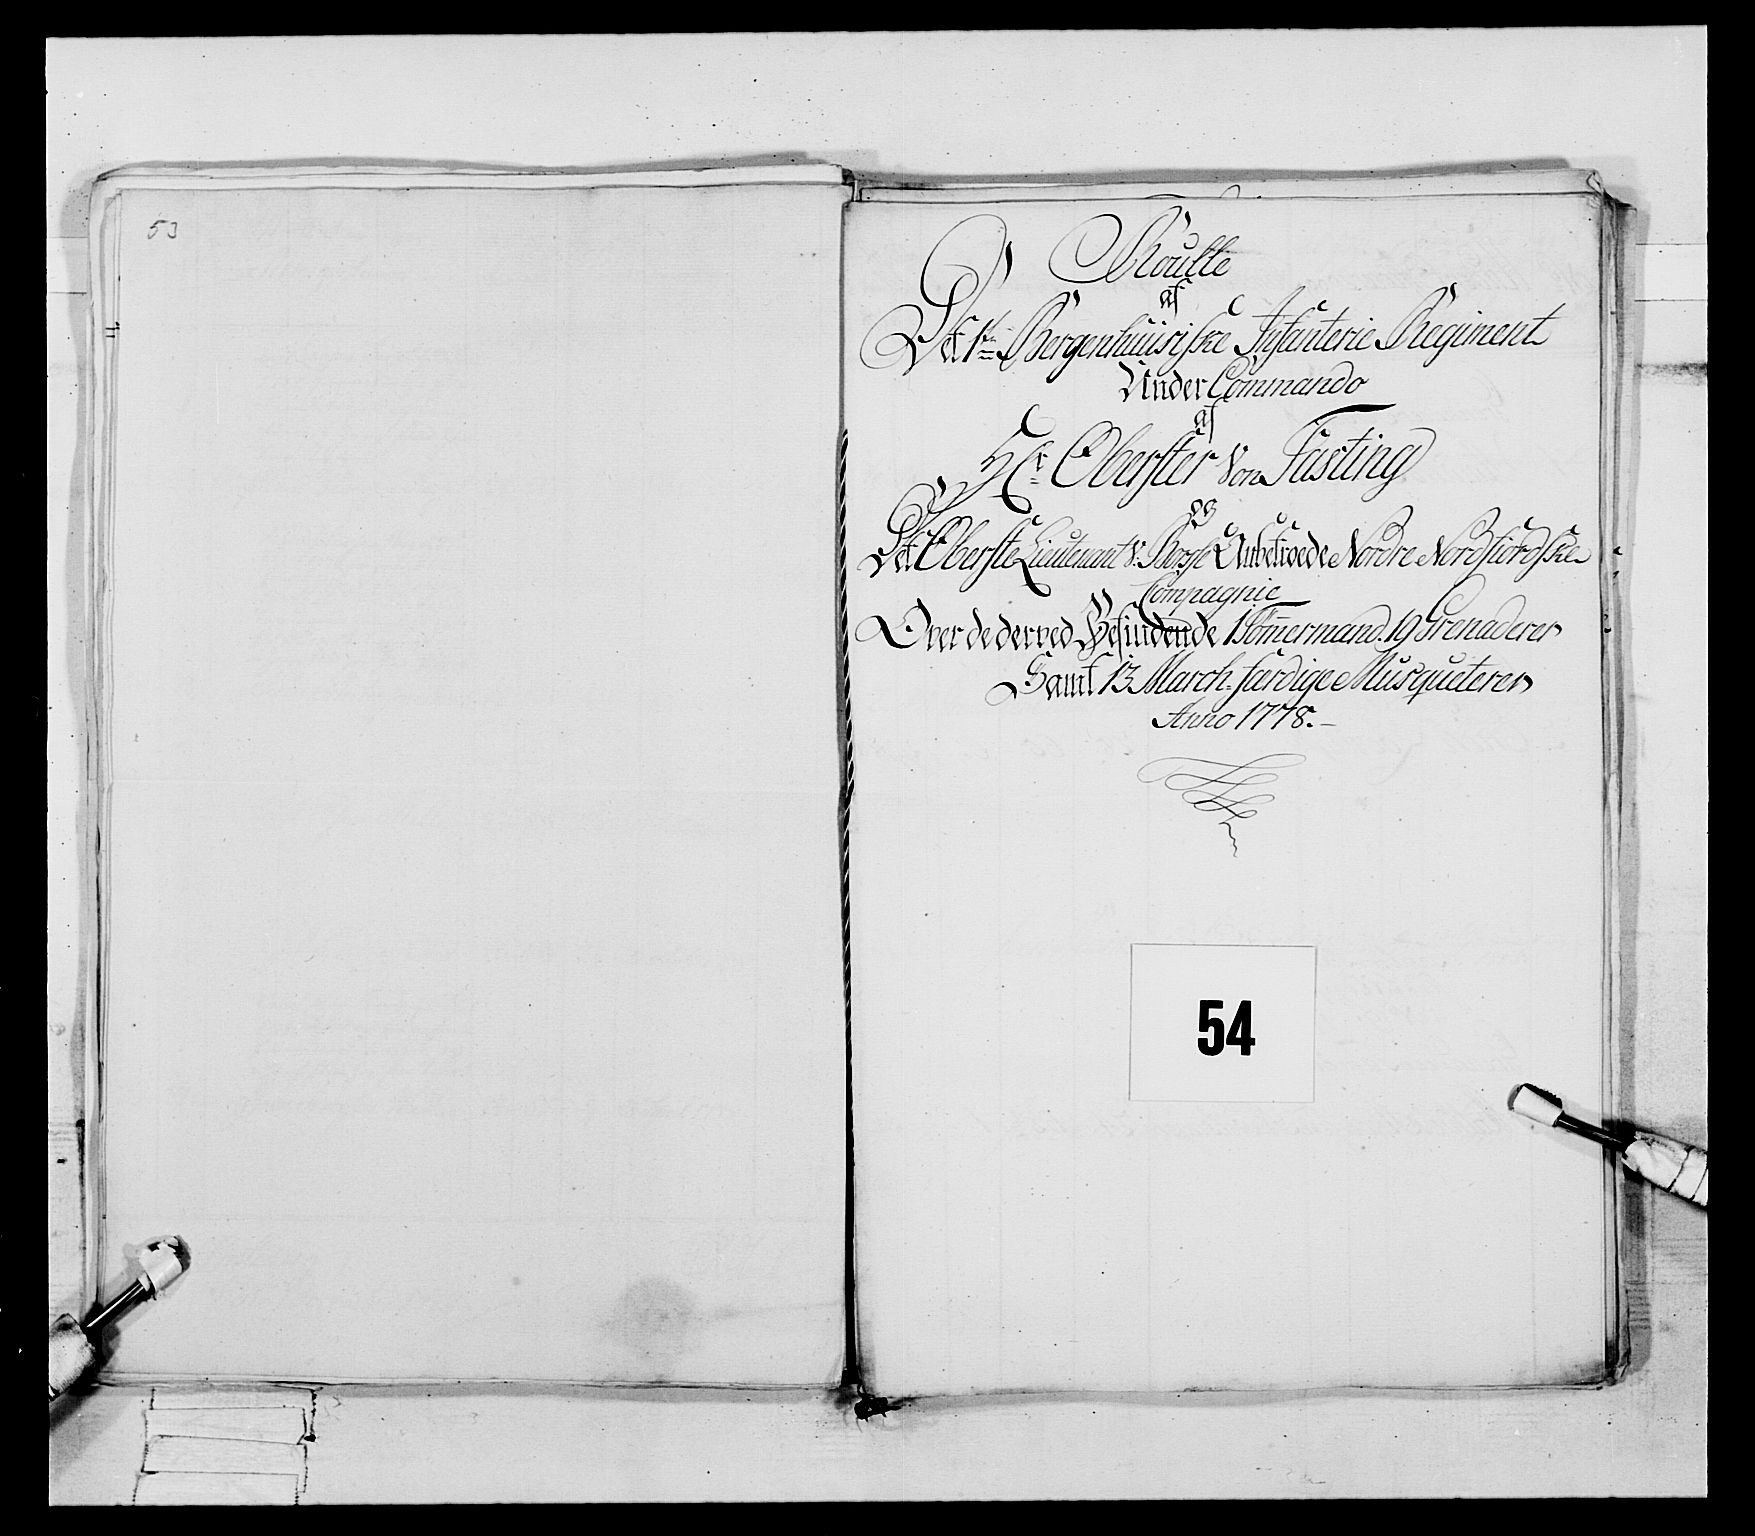 53
Roulle
af
Det 1ste Bergenhuusiske Infanterie Regiment
Under Commando
af
Hr Oberster Von Fasting
og
Det Oberste Lieutenant V: Anbetroede Nordre Nordfiordske
Compagnie
Over de derved Befindende 1 Tömermand. 19 Grenaderer
Samt 13 March-færdige Musqueterer
Anno 1778.-
54